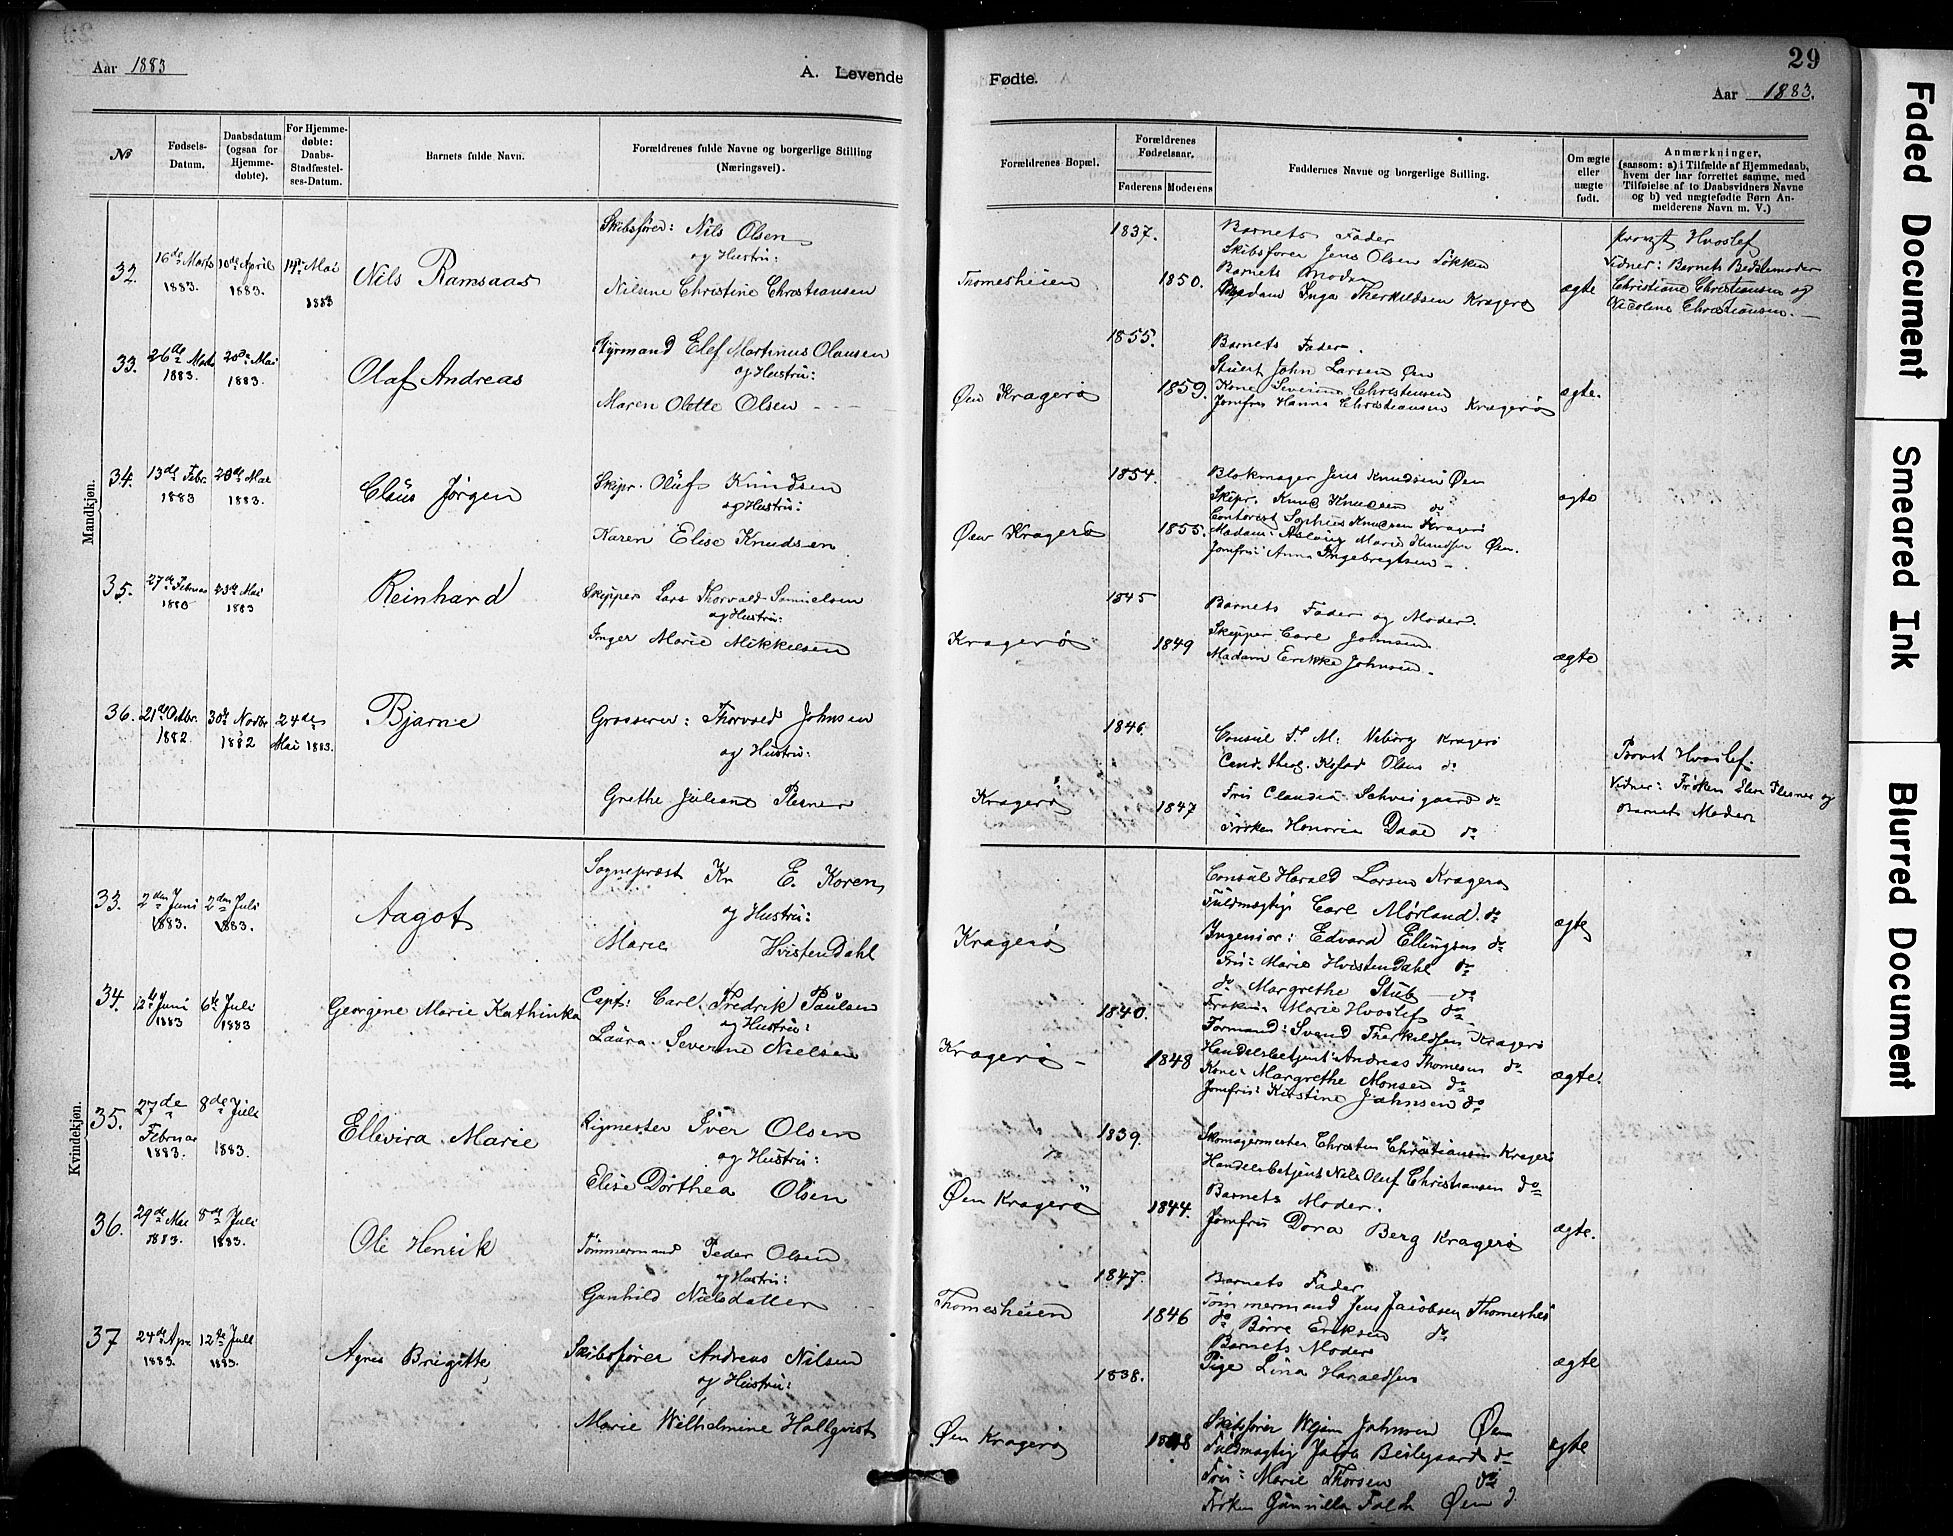 29
Aar 1883
A. Levende
Fødte.
Aar 1883.
№
Fødsels-Datum.
Daabsdatum (ogsaa for Hjemme-døbte).
For Hjemme-døbte: Daabs-Stadfæstel-ses-Datum.
Barnets fulde Navn.
Forældrenes fulde Navne og borgerlige Stilling (Næringsvei).
Forældrenes Bopæl.
Forældrenes Fødselsaar.
Faderens
Moderens
Faddernes Navne og borgerlige Stilling.
Om ægte eller uægte født.
Anmærkninger,
(saasom: a) i Tilfælde af Hjemmedaab,
hvem der har forrettet samme, med
Tilføielse af to Daabsvidners Navne
og b) ved uægtefødte Børn An-
melderens Navn m. V.)
Mandkjøn.
32.
16de Marts 1883.
10de April 1883.
14de Mai 1883
Nils Ramsaas
Skibsfører: Nils Olsen
og Hustru:
Nilsine Christine Christiansen
Thomesheien
1837.
1850.
Barnets Fader
Skibsfører Jens Olsen Løkken
Barnets Moder
Madam Inga Therkildsen Kragerø
ægte
provst Hvoslef
Vidner: Barnets Bedstemoder
Christiane Christiansen og
Nicoline Christiansen.
33.
26de Marts 1883.
20de Mai 1883.
Olaf Andreas
Styrmand Elef Martinus Olausen
og Hustru:
Maren Olette Olsen
Øen Kragerø
1855.
1859.
Barnets Fader.
Stuert John Larsen Øen
Kone Severine Christensen
Jomfru Hanna Christiansen Kragerø
ægte.
34.
13de Febr. 1883
20de Mai 1883.
Claus Jørgen
Skipr. Oluf Knudsen
og Hustru:
Karen Elise Knudsen
Øen Kragerø
1854.
1855.
Blokmager Jens Knudsen Øen
Skipr. Knud Knudsen do
Contorist Sophus Knudsen Kragerø
Madam: Aslaug Marie Knudsen Øen.
Jomfru Anna Ingebregtsen
ægte
35.
27de Februar 1883
23de Mai 1883
Reinhard
Skipper Lars Thorvald Samuelsen
og Hustru:
Inger Marie Mikkelsen
Kragerø
1845
1849
Barnets Fader og Moder.
Skipper Carl Johnsen
Madam Erikka Johnsen.
ægte
36.
21de Octbr. 1882.
30de Novbr 1882
24de Mai 1883.
Bjarne
Grosserer: Thorvald Johnsen
og Hustru:
Grethe Juliane Plesner
Kragerø
1846
1847
Consul T. M. Viborg Kragerø
Cand. theol. Olsen do
Fru Claudia Schweigaard do
Frøken Honoria Daae do
Provst Hvoslef:
Vidner: Frøken Elen Plesner og
Barnets Moder
Kvindekjøn.
33.
2den Juni 1883.
2den Juli 1883.
Aagot
Sognepræst Kr E. Koren
og Hustru:
Marie Hvistendahl
Kragerø
Consul Harald Larsen Kragerø
Fuldmægtig Carl Mørland do
Ingeniør: Edvard Ellingsen do
Fru: Marie Hvistendahl do
do Margrethe Stub do
Frøken: Marie Hvoslef do
ægte
34.
12te Juni 1883
6te Juli 1883
Georgine Marie Kathinka
Capt: Carl Fredrik Paulsen
og Hustru:
Laura Severine Nielsen
Kragerø
1840.
1848
Formand: Svend Therkildsen Kragerø
Handelsbetjent: Andreas Thomesen do
Kone: Margrethe Monsen do
Jomfru: Kirstine Johnsen do
ægte.
35.
27de Februar 1883.
8de Juli 1883.
Ellevira Marie
Rigmester Iver Olsen
og Hustru:
Elise Dorthea Olsen
Øen Kragerø
1839.
1844.
Skomagermester Christen Christiansen Kragerø
Handelsbetjent Nils Oluf Christiansen do
Barnets Moder.
Jomfru Dora Berg Kragerø
ægte.
36.
29de Mai 1883.
8de Juli 1883.
Ole Henrik
Tømmermand Peder Olsen
og Hustru:
Gunhild Nielsdatter
Thomesheien
1847.
1846
Barnets Fader
Tømmermand Jens Jacobsen Thomeshei
do Børre Eriksen do
Barnets Moder
Pige Lina Haraldsen
ægte
37
24de Apr. 1883.
12te Juli 1883.
Agnes Brigitte,
Skibsfører Andreas Nilsen
og Hustru:
Marie Wilhelmine Hallqvist
Øen Kragerø
1838.
1848
Skibsfører Johnsen Øen
Fuldmægtig Jacob Beilegaard do
Fru: Marie Thorsen do
Frøken Gunilla Falch Øen
ægte
Faded Document
Smeared Ink
Blurred Document